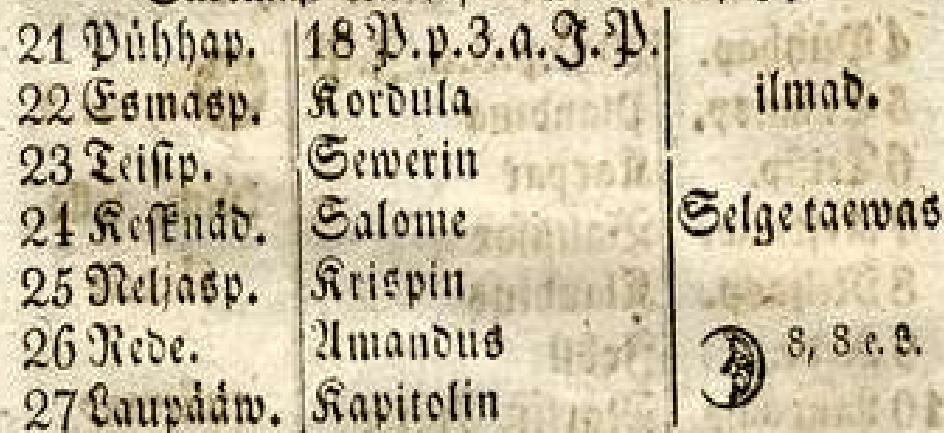 21 Pühhap. 18 P. p. 3. a. J. P.
22 Esmasp. Kordula ilmad.
23 Teisip. Sewerin
24 Kesknäd. Salome Selge taewas
25 Neljasp. Krispin
26 Rede. Amandus 8, 8 e. L.
27 Laupääw. Kapitolin